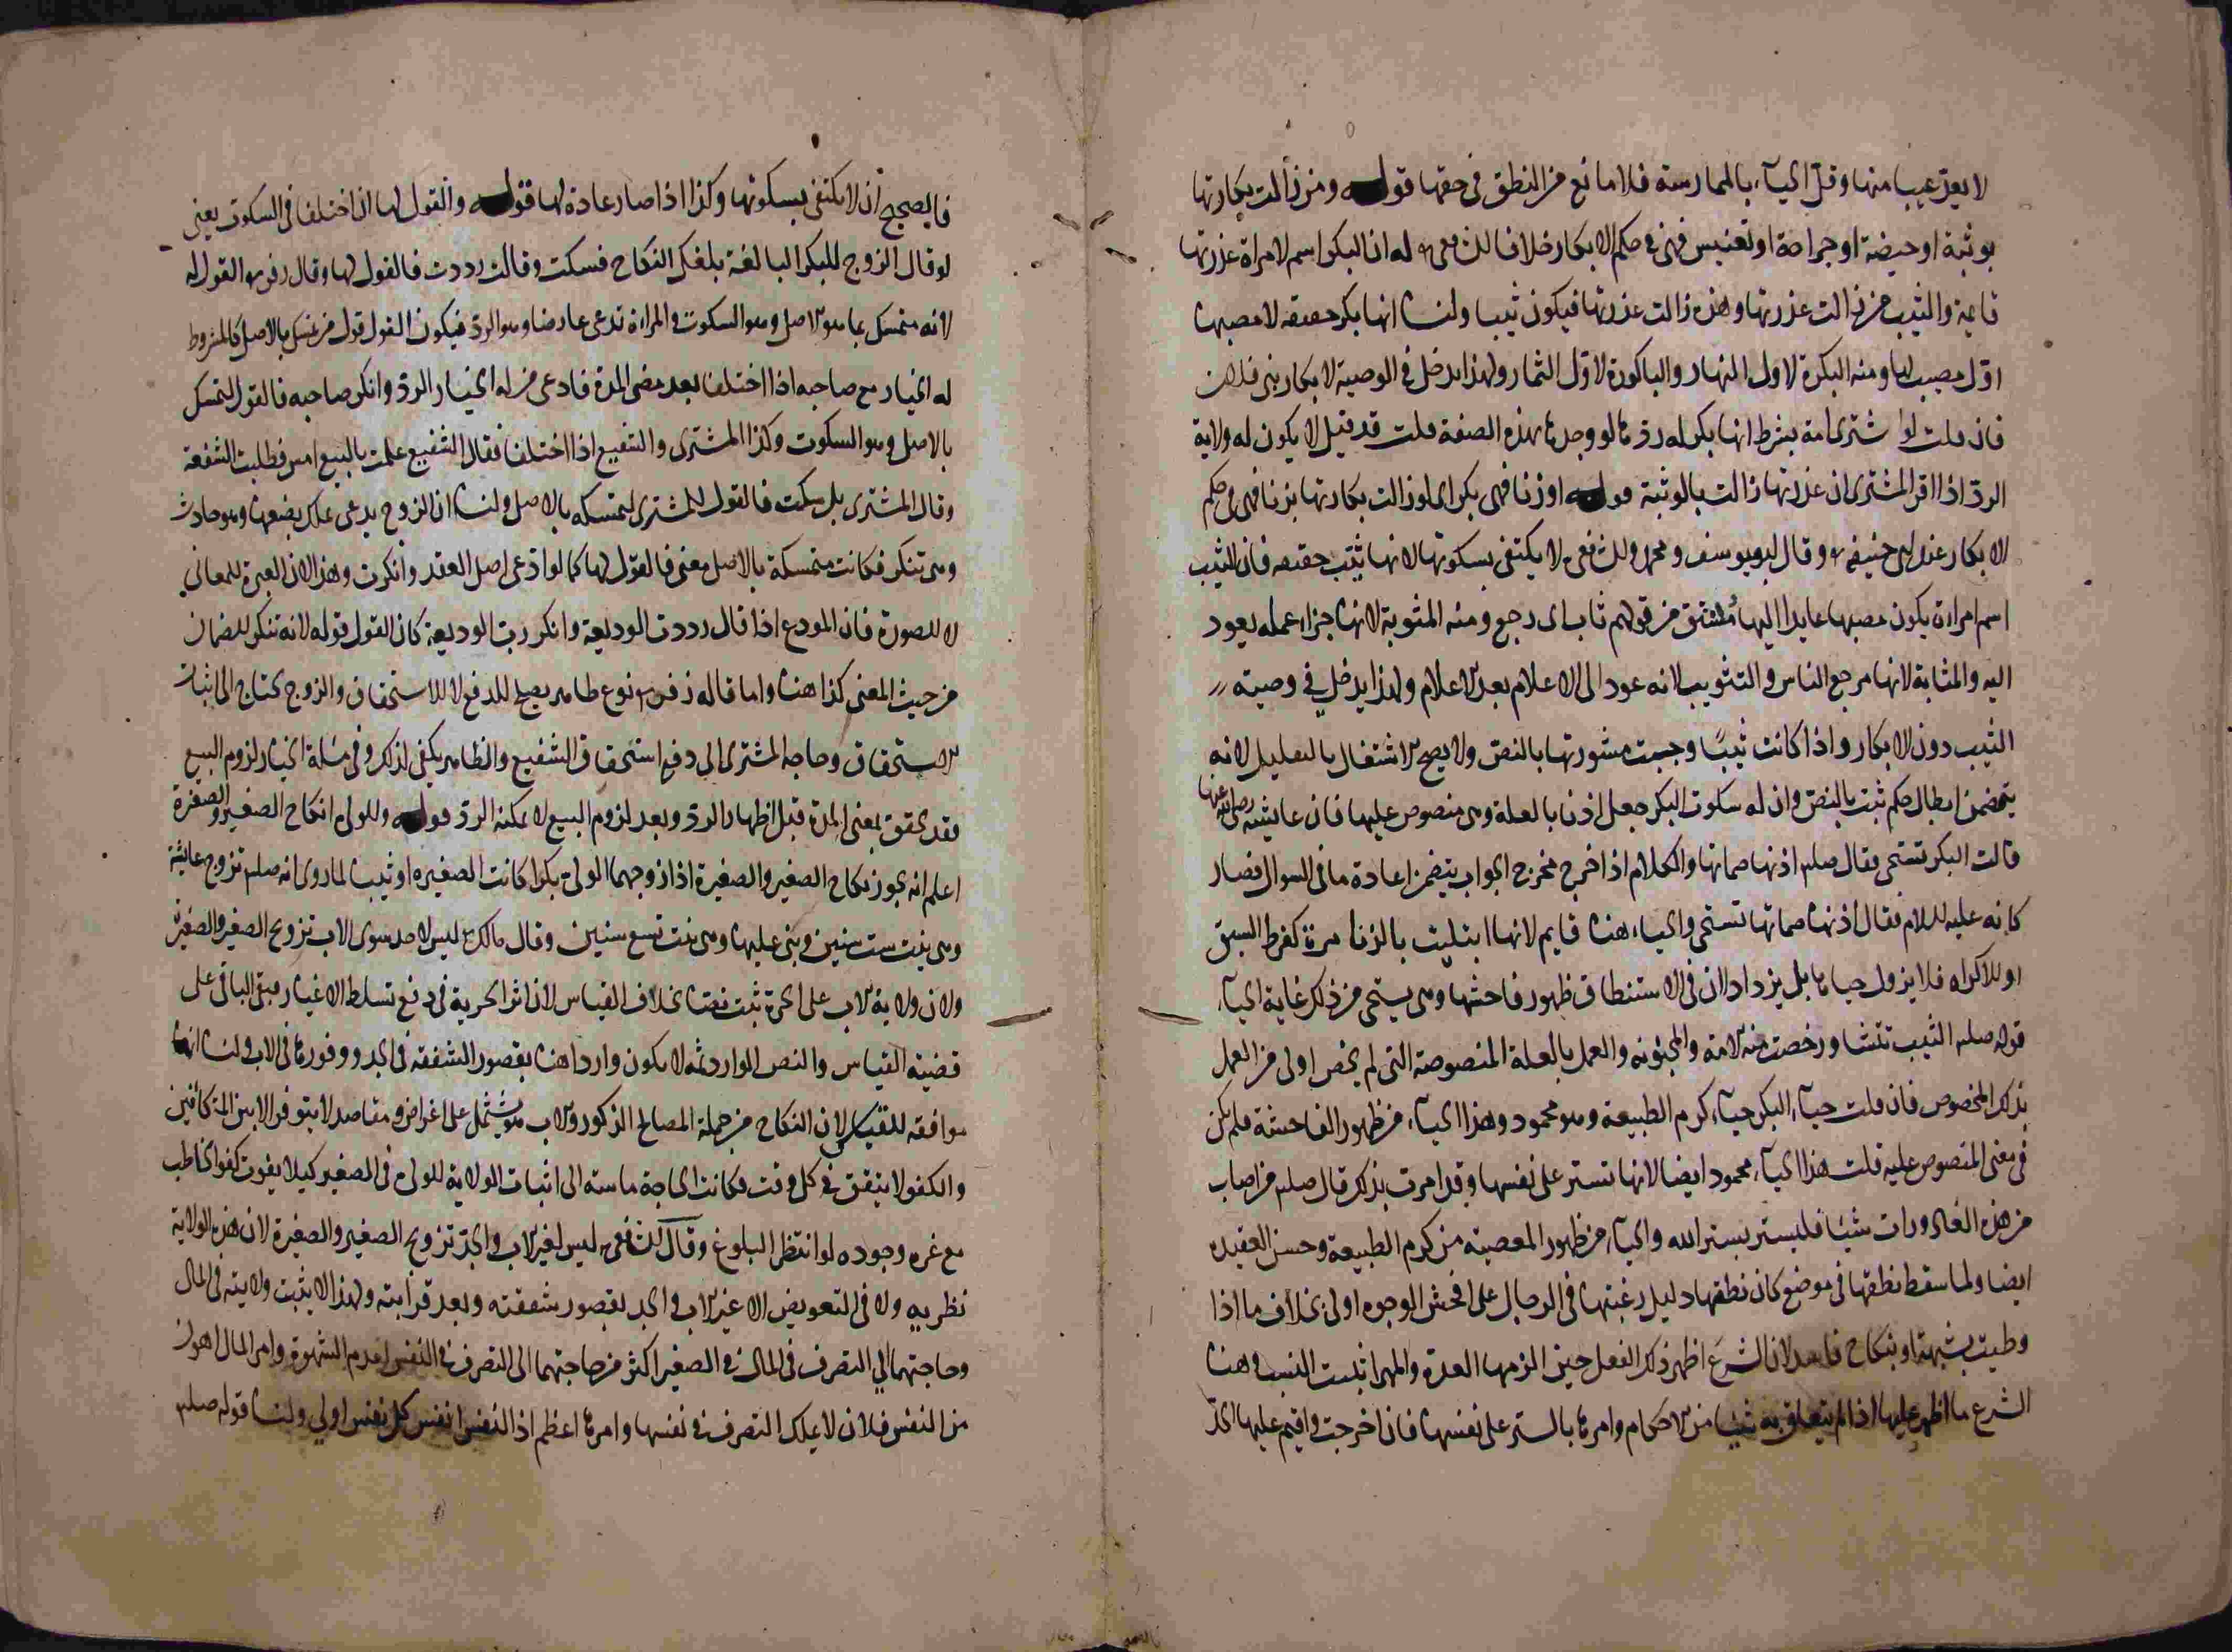 لا يعدّ عيبا منها وقلّ الحيآء بالممارسة فلا مانع من النطق في حقها قوله ومن زالت بكارتها
بوثبة او حيضة او جراحة او تعنيس فهي في حكم الابكار خلافا للشافعي له ان البكر اسم لامراة عذرتها
قايمة والثيب من زالت عذرتها وهذه زالت عذرتها فيكون ثيبا ولنا انها بكر حقيقة لان مصيبها
اوّل مصيب لها ومنه البكرة لاول النهار والباكورة لاوّل الثمار ولهذا يدخل في الوصية لابكار بني فلان
فان قلت لو اشترى امة بشرط انها بكر له ردّها لو وجدها بهذه الصفة قلت قد قيل لا يكون له ولاية
الردّ اذا اقر المشتري ان عذرتها زالت بالوثبة قوله او زنا فهي بكر اى لو زالت بكارتها بزنا فهي في حكم
الابكار عند ابي حنيفة وقال ابو يوسف ومحمد والشافعي لا يكتفى بسكوتها لانها ثيّب حقيقة فان الثيب
اسم امراة يكون مصيبها عايدا اليها مشتق من قولهم ثاب اى رجع ومنه المثوبة لانها جزاء عمله يعود
اليه والمثابة لانها مرجع الناس والتثويب لانه عود الى الاعلام بعد الاعلام ولهذا يدخل في وصية
الثيب دون الابكار واذا كانت ثيبًا وجبت مشورتها بالنصّ ولا يصح الاشتغال بالتعليل لانه
يتضمن ابطال حكم ثبت بالنصّ وان له سكوت البكر جعل اذنا بالعلة وهي منصوص عليها فان عايشة رضي الله عنها
قالت البكر تستحي فقال صلم اذنها صماتها والكلام اذا اخرج مخرج الجواب يتضمن اعادة ما في السوال فصار
كانه عليه السلام فقال اذنها صماتها تستحي والحياء هنا قايم لانها ابتليت بالزنا مرة كفرط السبق
او للاكراه فلا يزول حياها بل يزداد اذ في الاستنطاق ظهور فاحشها وهي يستحي من ذلك غاية الحيآء
قوله صلم الثيب تتشاور خصت منه الامة والمجنونة والعمل بالعلة المنصوصة التي لم يخص اولى من العمل
بذلك المخصوص فان قلت حيآء البكر حيآء كرم الطبيعة وهو محمود وهذا الحيآء من ظهور الفاحشة فلم يكن
في معنى المنصوص عليه قلت هذا الحيآء محمود ايضا لانها تستر على نفسها وقد امرت بذلك قال صلم من اصاب
من هذه القاذورات شيئا فليستر بستر الله والحيآء من ظهور المعصية من كرم الطبيعة وحسن العقيدة
ايضا ولما سقط نطقها في موضع كان نطقها دليل رغبتها في الرجال على افحش الوجوه اولى بخلاف ما اذا
وطيت بشبهة او بنكاح فاسد لان الشرع اظهر ذلك الفعل حين الزمها العدة والمهر واثبت النسب وهنا
الشرع ما اظهر عليها اذا لم يتعلق به شيئا من الاحكام وامرها بالستر على نفسها فان اخرجت واقيم عليها الحدّ
فالصحيح ان لا يكتفى بسكوتها وكذا اذا صار عادة لها قوله والقول لها ان اختلفا في السكوت يعني
لو قال الزوج للبكر البالغة بلغك النكاح فسكت وقالت رددت فالقول لها وقال زفر القول له
لانه متمسك بما هو الاصل وهو السكوت والمراة تدعي عارضا وهو الردّ فيكون القول قول من تمسك بالاصل كالمشروط
له الخيار مع صاحبه اذا اختلفا بعد مضى المدة فادعى من له الخيار الردّ وانكر صاحبه فالقول لمتمسك
بالاصل وهو السكوت وكذا المشتري والشفيع اذا اختلفا فقال الشفيع علمت بالبيع امس فطلبت الشفعة
وقال المشتري بل سكت فالقول للمشتري لتمسكه بالاصل ولنا ان الزوج يدعي تملك بضعها وهو حادث
وهي تنكر فكانت متمسكة بالاصل معنى فالقول لها كما لو ادّعى اصل العقد وانكرت وهذا لان العبرة للمعاني
لا للصورة فان المودع اذا قال رددت الوديعة وانكر ربّ الوديعة كان القول قوله لانه تنكر للضمان
من حيث المعنى كذا هنا واما قاله زفر نوع ظاهر يصلح للدفع لا للاستحقاق والزوج يحتاج الى اثبات
الاستحقاق وحاجة المشتري الى دفع استحقاق الشفيع والظاهر يكفي لذلك وفي مسئلة الخيار لزوم البيع
قد تحقق بمضى المدة قبل اظهار الردّ وبعد لزوم البيع لا يمكنه الردّ قوله وللولي انكاح الصغير والصغيرة
اعلم انه يجوز نكاح الصغير والصغيرة اذا زوجهما الولي بكرا كانت الصغيره او ثيبا لما روى انه صلم تزوج عايشة
وهي بنت ست سنين وبنى عليها وهي بنت تسع سنين وقال مالك ليس لاحد سوى الاب تزويج الصغير والصغيرة
ولان ولاية الاب على الحرة ثبت نصّا بخلاف القياس لان اثر الحرية في دفع تسلط الاغيار فبقى الباقي على
قضية القياس والنص الوارد ثمه لا يكون واردا هنا بقصور الشفقة في الجد ووفورها في الاب ولنا انها
موافقة للقياس لان النكاح من جملة المصالح الذكور والاب هو يشتمل على اغراض ومقاصد لا يتوفر الا بين المتكافئين
والكفو لا يتفق في كل وقت فكانت الحاجة ماسة الى اثبات الولاية للولي في الصغير كيلا يفوت كفو الخاطب
مع عزه وجوده لو انتظر البلوغ وقال الشافعي ليس لغير الاب والجد تزويج الصغير والصغيرة لان هذه الولاية
نظرية ولا في التعويض الا غير الاب والجد لقصور شفقته وبعد قرابته ولهذا لا يثبت ولايته في المال
وحاجتهما الى التصرف في المال في الصغير اكثر من حاجتهما الى التصرف في النفس لعدم الشهوة وامر المال اهون
من النفس فلان لا يملك التصرف في نفسها وامرها اعظم اذ النفس انفس كل نفس اولى ولنا قوله صلم